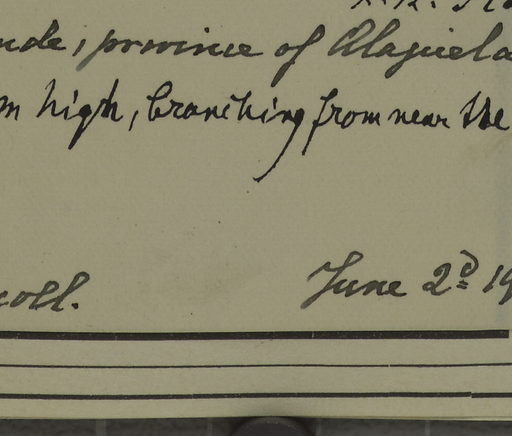 nde, province of Alajuela
m high, branching from near the
coll. June 2d 19